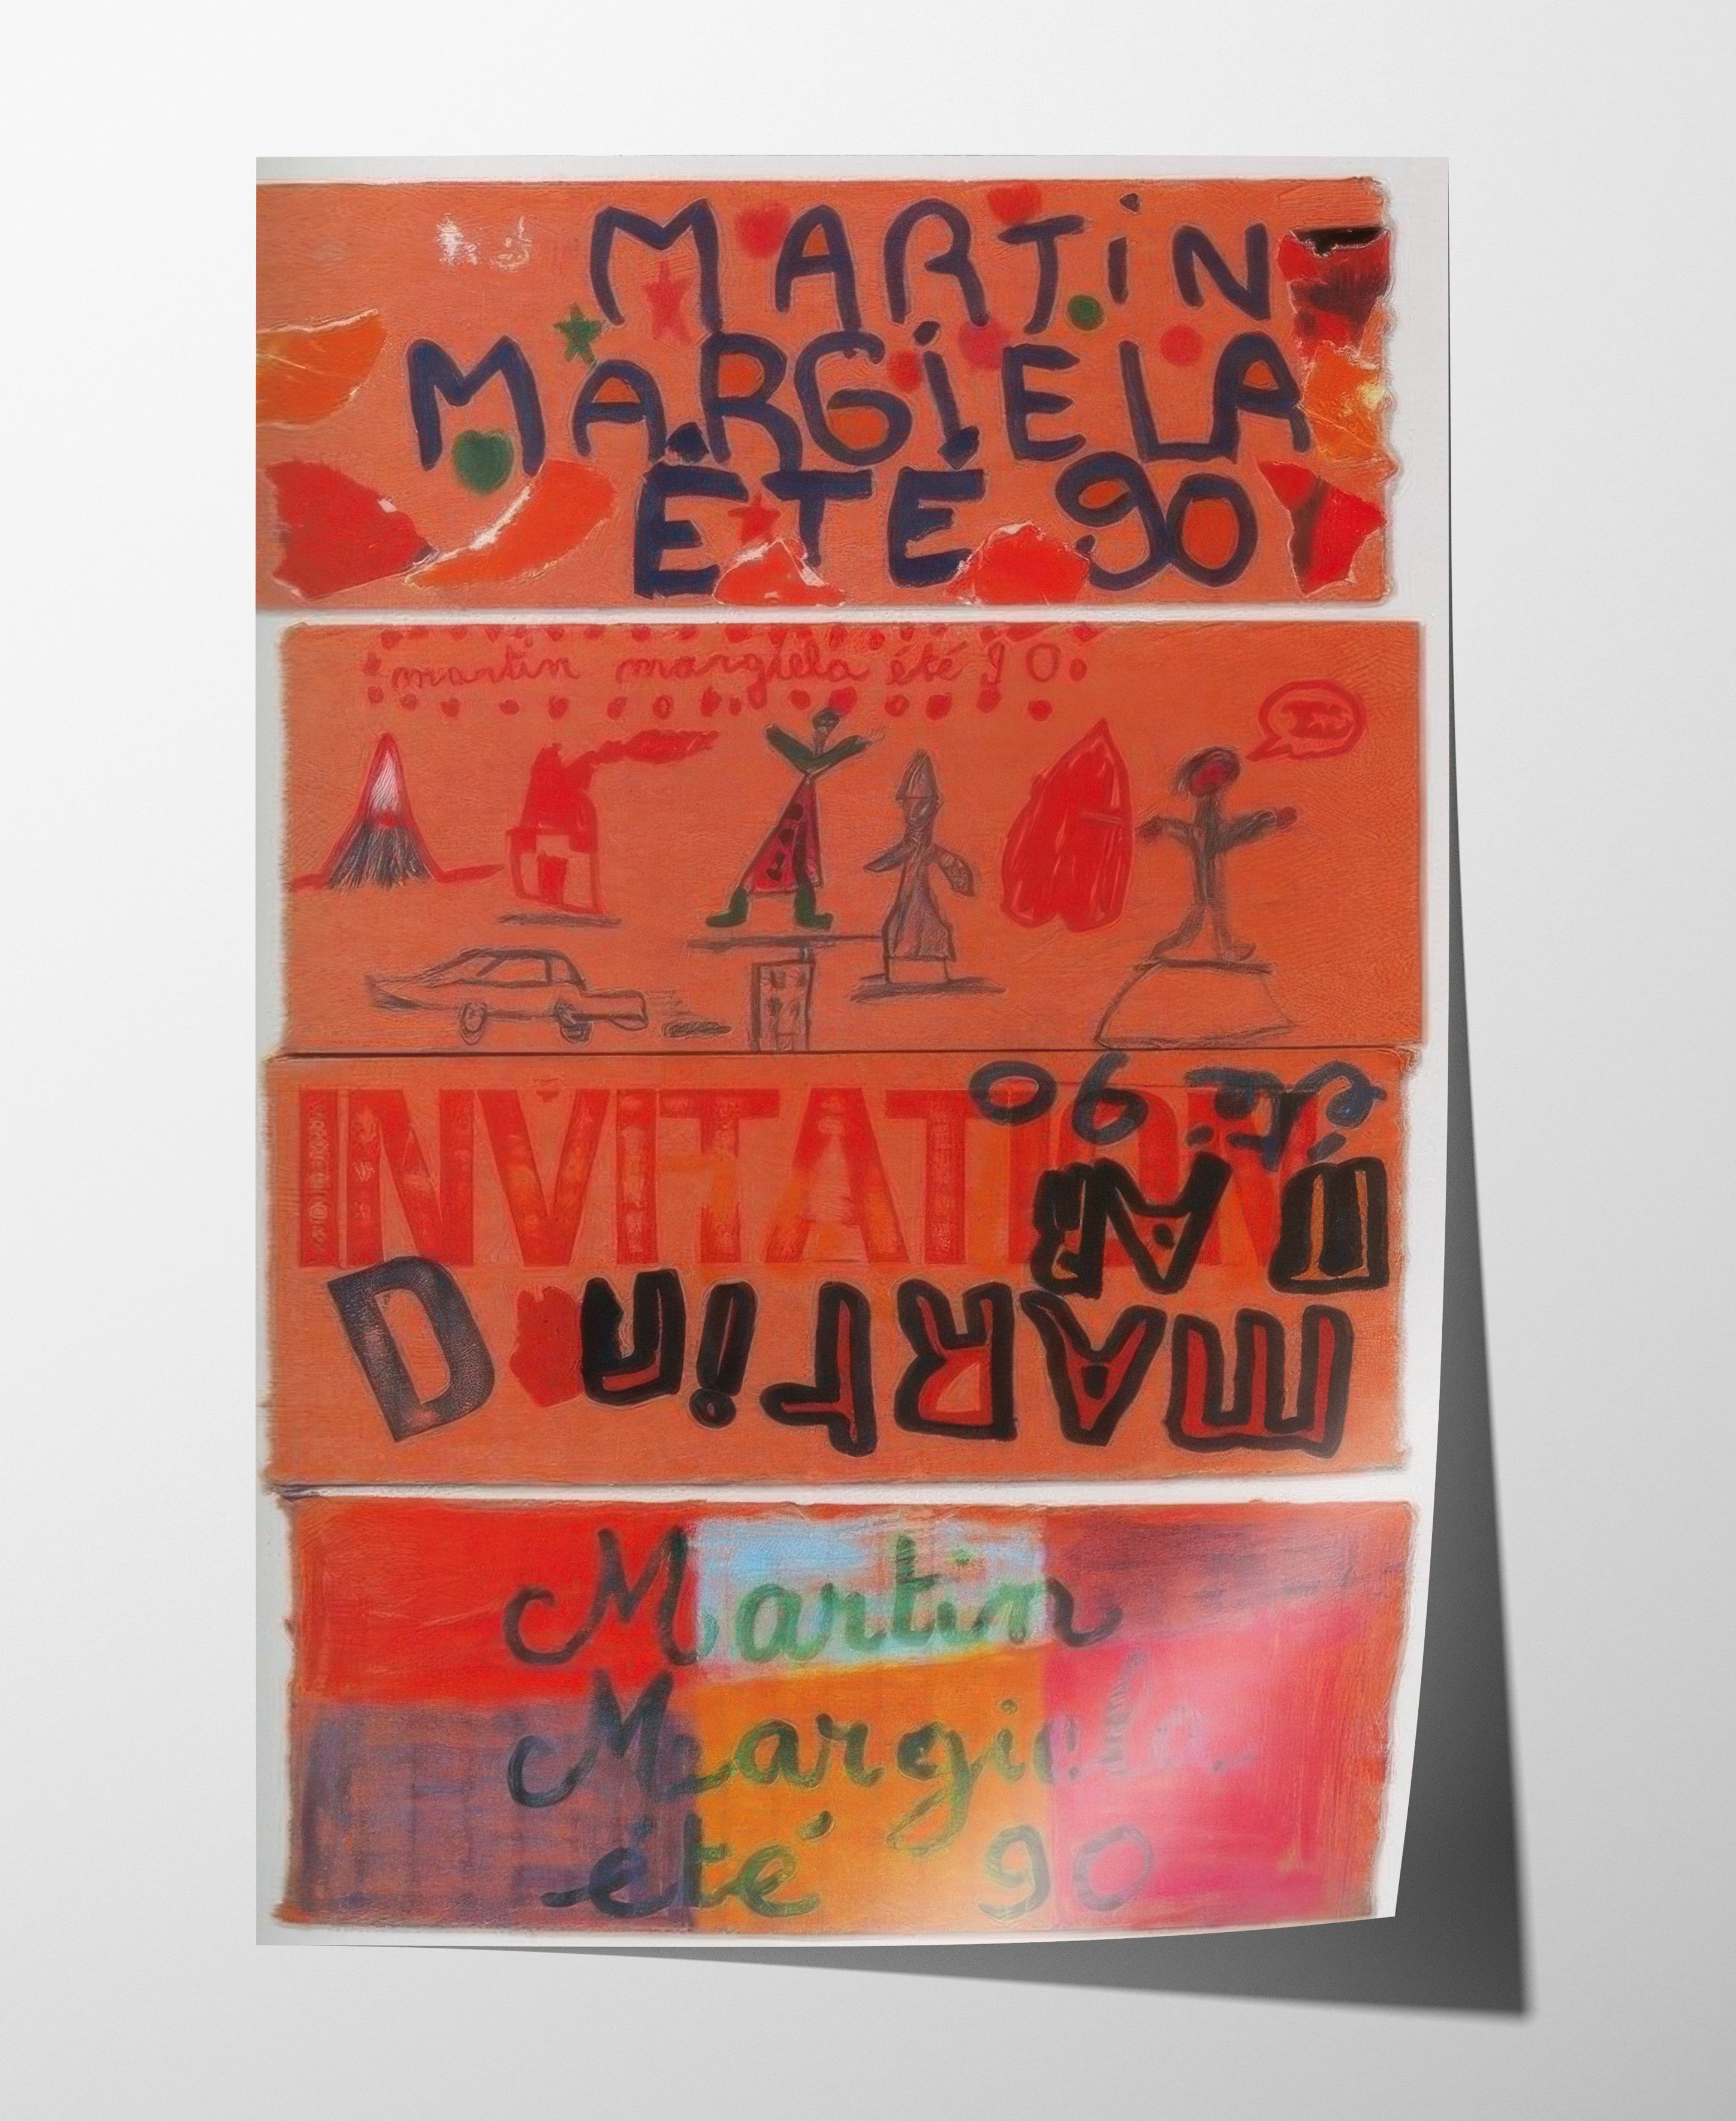 MARTiN
MARGiELA
ÉTÉ 90
martin margiela été 90
INVITATION
90
D
MARTin
Martin
Margiela
été 90